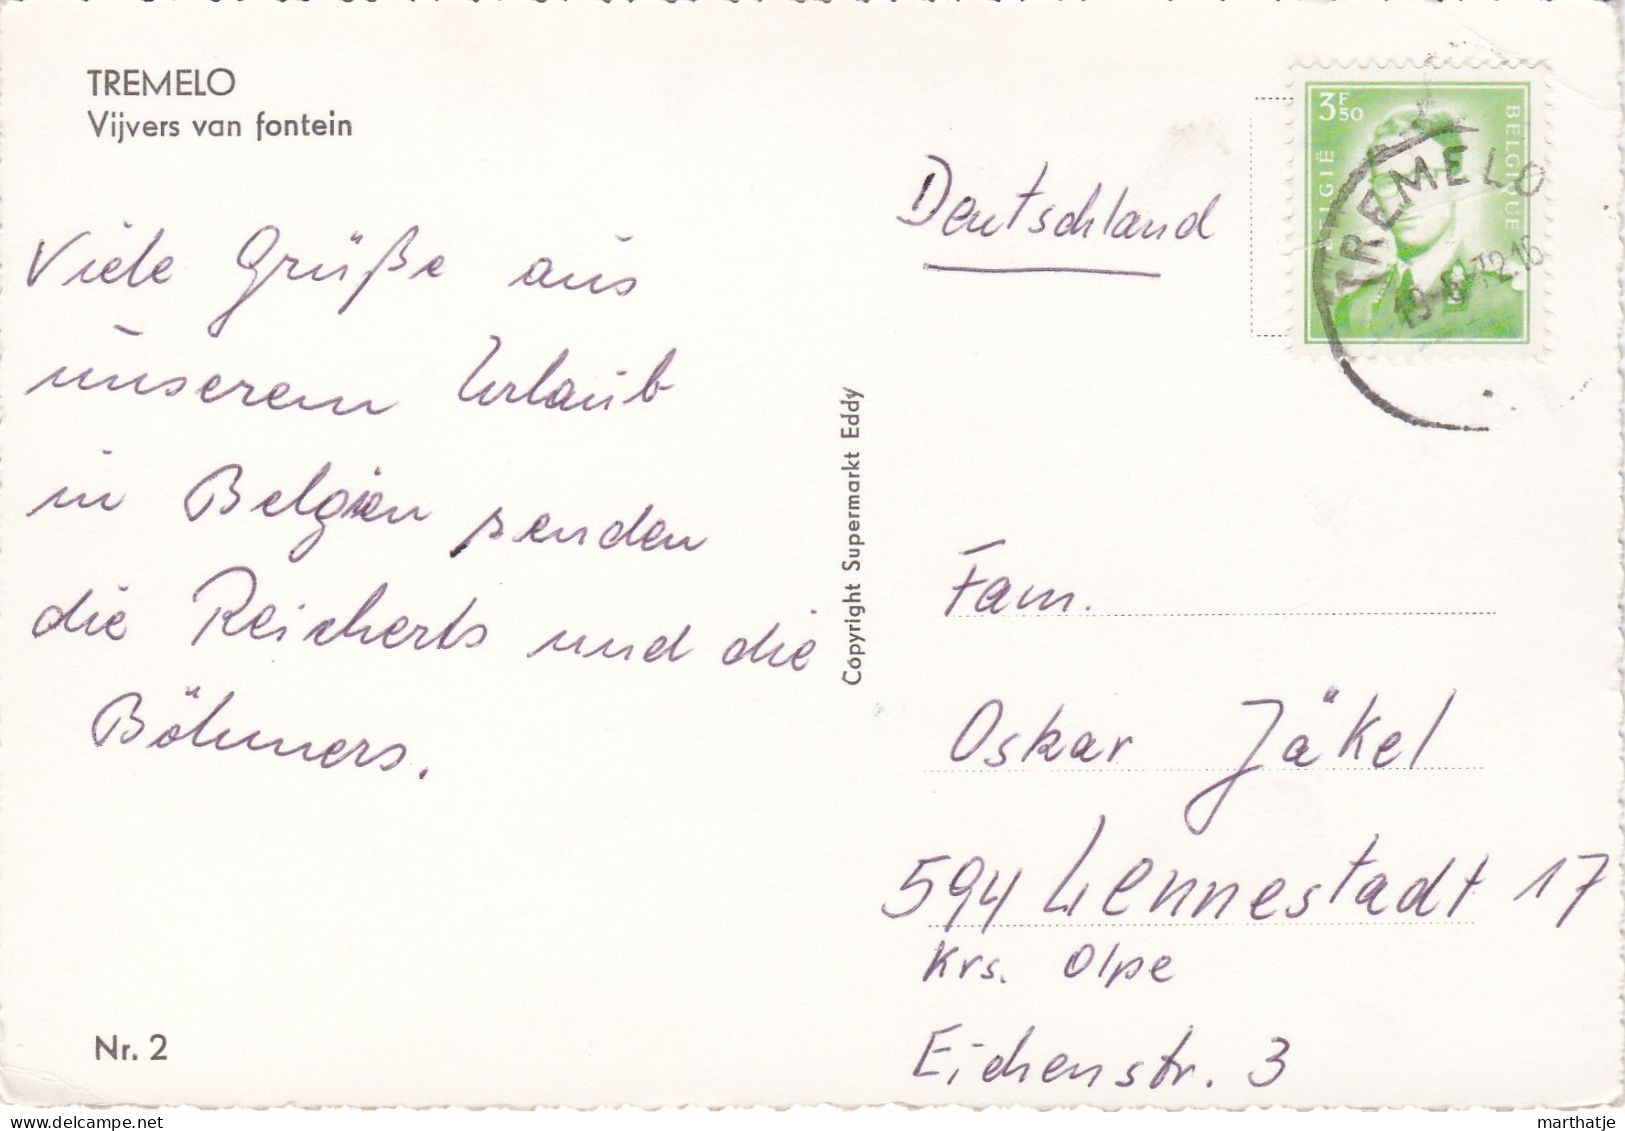 TREMELO
Vijvers van fontein
Viele Grüße aus
unserem Urlaub
in Belgien senden
die Reicherts und die
Böhmers.
Nr. 2
Copyright Supermarkt Eddy
3F50
BELGIË
BELGIQUE
TREMELO
Deutschland
Fam.
Oskar Jäkel
594 Lennestadt 17
Krs. Olpe
Eichenstr. 3
marthatje